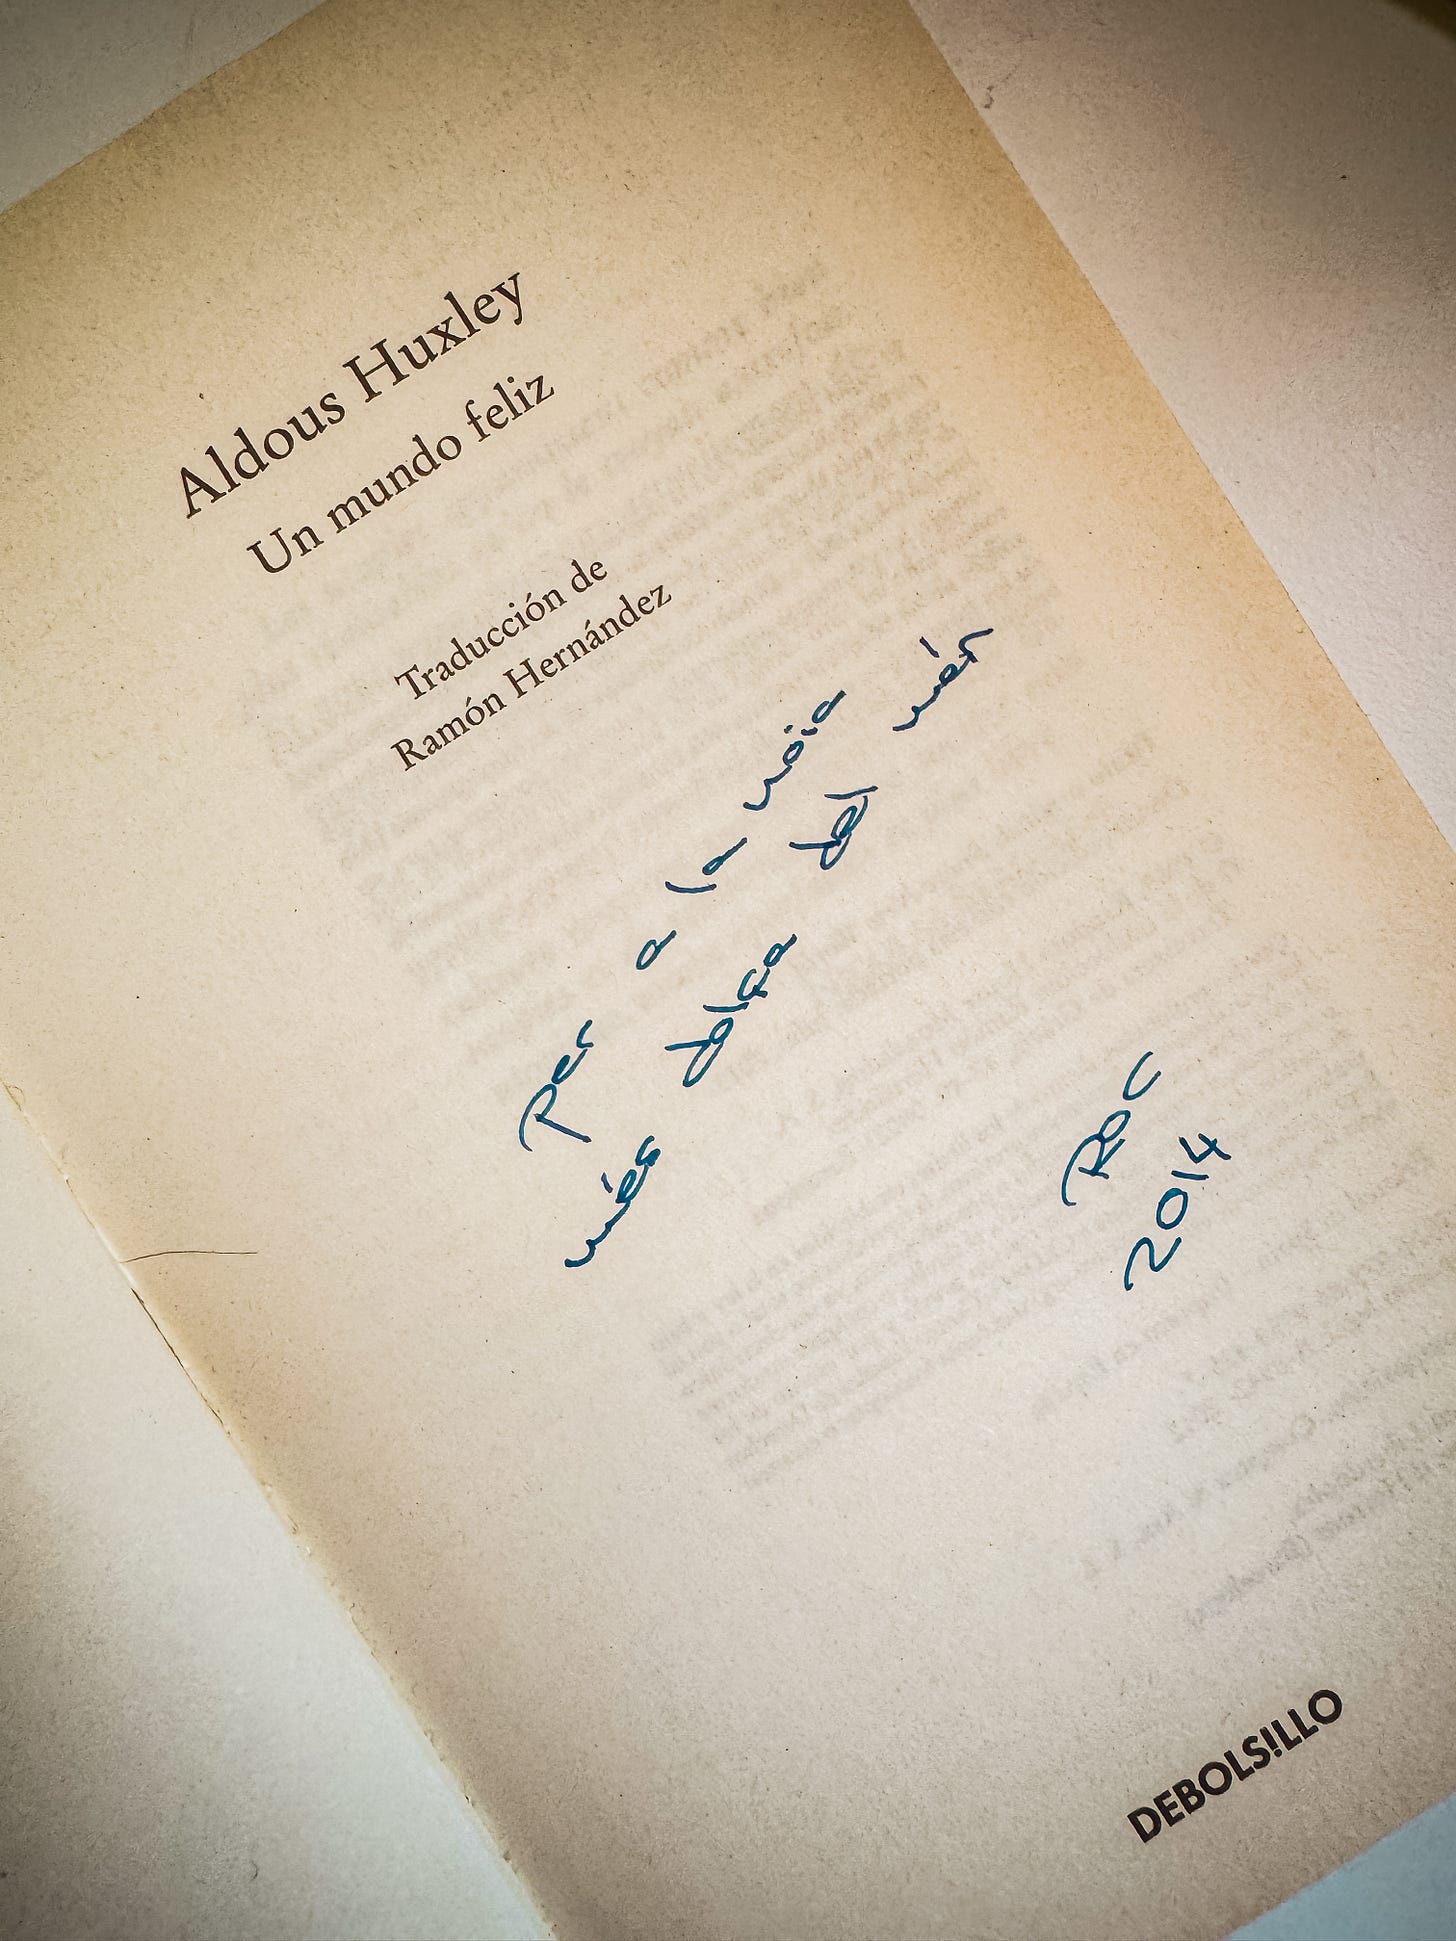 Aldous Huxley
Un mundo feliz
Traducción de
Ramón Hernández
Per a la noia
més dolça del món
Roc
2014
DEBOLS!LLO